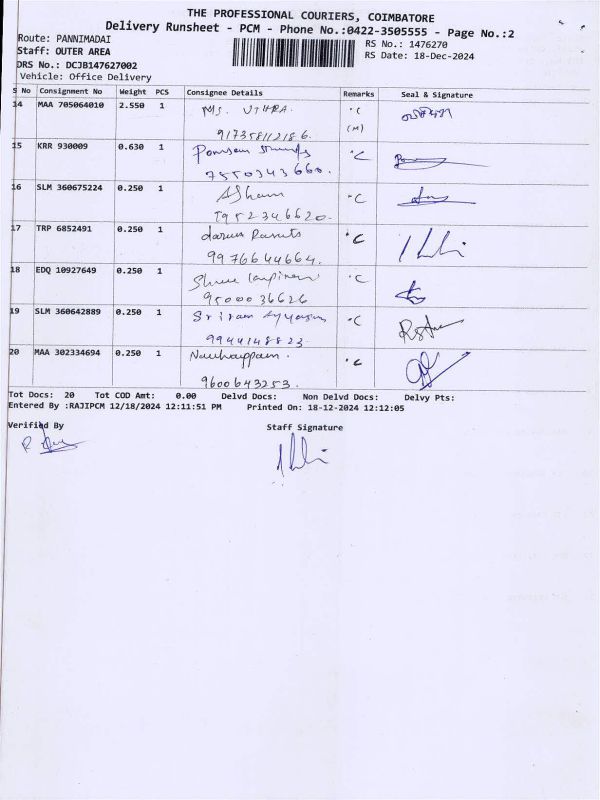 THE PROFESSIONAL COURIERS, COIMBATORE
Delivery Runsheet - PCM - Phone No.:0422-3505555 - Page No.:2
Route: PANNIMADAI
RS No.: 1476270
Staff: OUTER AREA
RS Date: 18-Dec-2024
DRS No.: DCJB147627002
Vehicle: Office Delivery
S No Consignment No Weight PCS Consignee Details Remarks Seal & Signature
14 MAA 705064010 2.550 1 MS. UTHRA. °C
(M)
15 KRR 930009 0.630 1 °C
7550343660.
16 SLM 360675224 0.250 1 °C
9952346620.
17 TRP 6852491 0.250 1 °C
9976644664.
18 EDQ 10927649 0.250 1 °C
9500036626
19 SLM 360642889 0.250 1 Sriram °C
9944148823.
20 MAA 302334694 0.250 1 °C
9600643253.
Tot Docs: 20 Tot COD Amt: 0.00 Delvd Docs: Non Delvd Docs: Delvy Pts:
Entered By :RAJIPCM 12/18/2024 12:11:51 PM Printed On: 18-12-2024 12:12:05
Verified By
Staff Signature